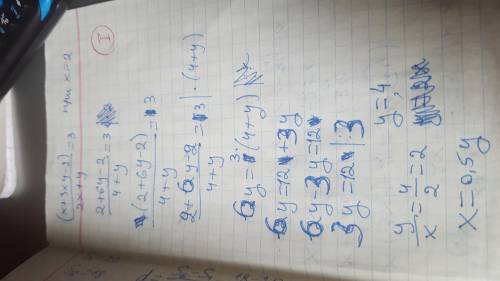 I
(x+3xy-2)/(2x+y) = 3 при x=2
(2+6y-2)/(4+y) = 3
(2+6y-2)/(4+y) = 3
(2+6y-2)/(4+y) = 3 | · (4+y)
6y = 3·(4+y)
6y=12+3y
6y-3y=12
3y=12 | :3
y=4,
y/x = 4/2 = 2
x=0,5y